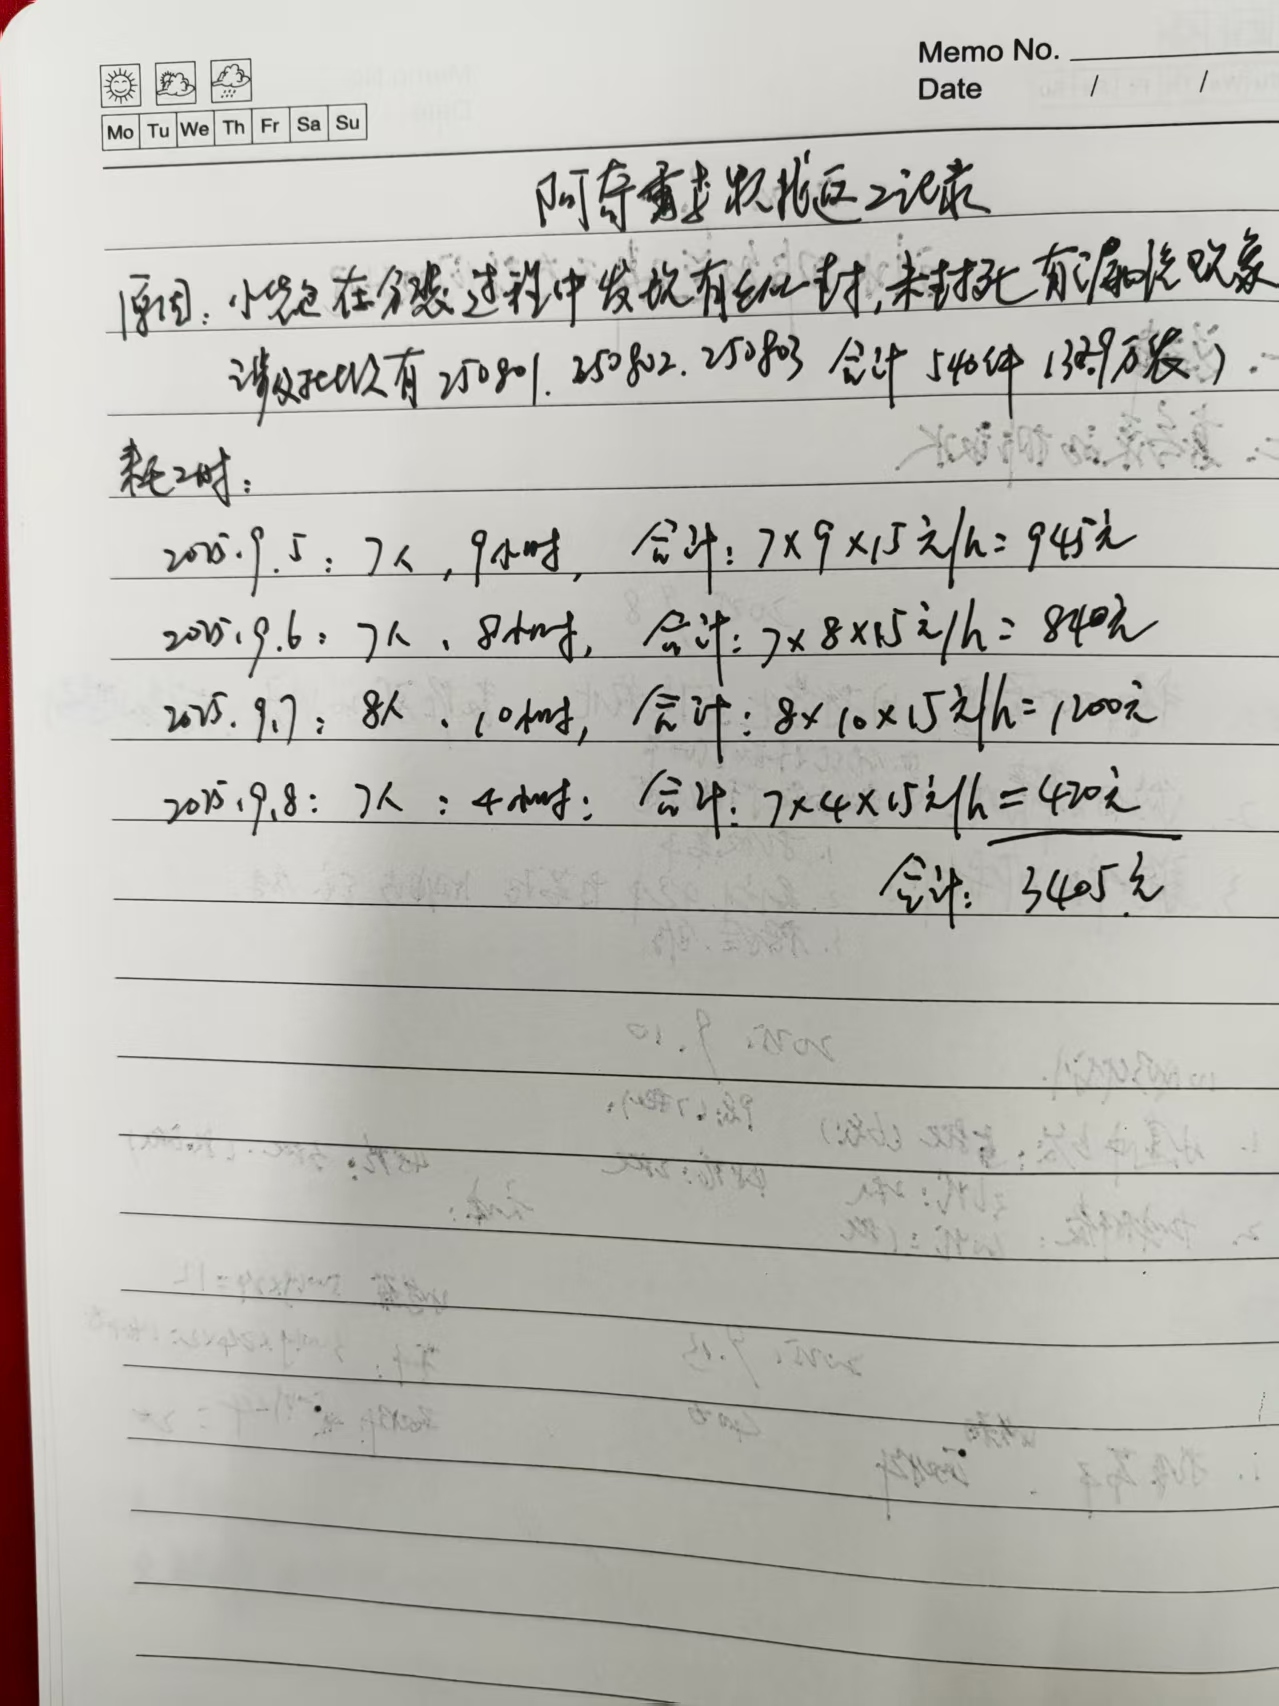 Memo No.
Date / /
Mo Tu We Th Fr Sa Su
阿奇霉素颗粒返工记录
原因：小袋包在分装过程中发现有纵封，未封死有漏粉现象
涉及批次有250801. 250802. 250803 合计540件
耗工时：
2025.9.5：7人，9小时，合计：7×9×15元/h=945元
2025.9.6：7人、8小时，合计：7×8×15元/h=840元
2025.9.7：8人、10小时，合计：8×10×15元/h=1200元
2025.9.8：7人：4小时；合计：7×4×15元/h=420元
合计：3405元